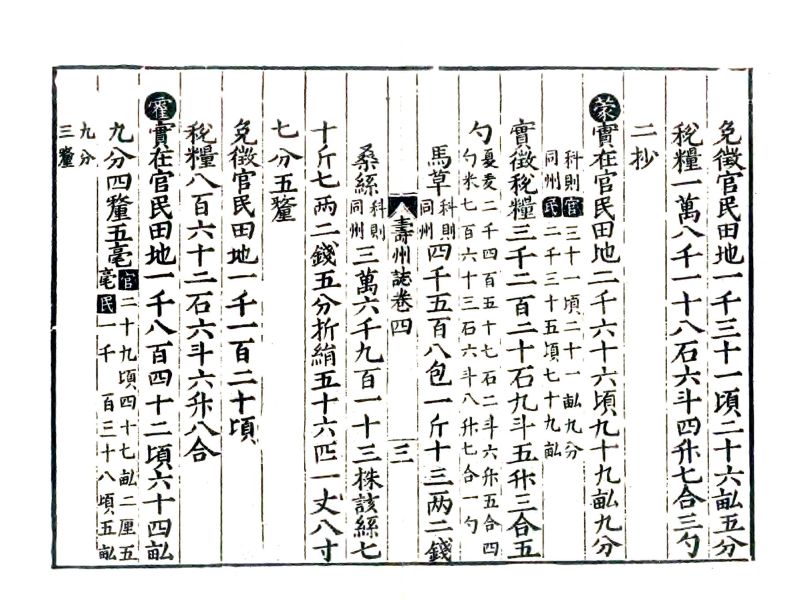 免徵官民田地一千三十一頃二十六畝五分
稅糧一萬八千一十八石六斗四升七合三勺
二抄
蒙實在官民田地二千六十六頃九十九畝九分
科則官三十一頃二十一畝九分
同州民二千三十五頃七十九畝
實徵稅糧三千二百二十石九斗五升三合五
勺夏麦二千四百五十七石二斗六升五合四
勺米七百六十三石六斗八升七合一勺
馬草科則同州四千五百八包一斤十三两二錢
壽州誌卷四
三
桑絲科則同州三萬六千九百一十三株該絲七
十斤七两二錢五分折絹五十六匹一丈八寸
七分五釐
免徵官民田地一千一百二十頃
稅糧八百六十二石六斗六升八合
霍實在官民田地一千八百四十二頃六十四畝
九分四釐五毫官二十九頃四十七畝二厘五
毫民一千 百三十八頃五畝
九分
三釐